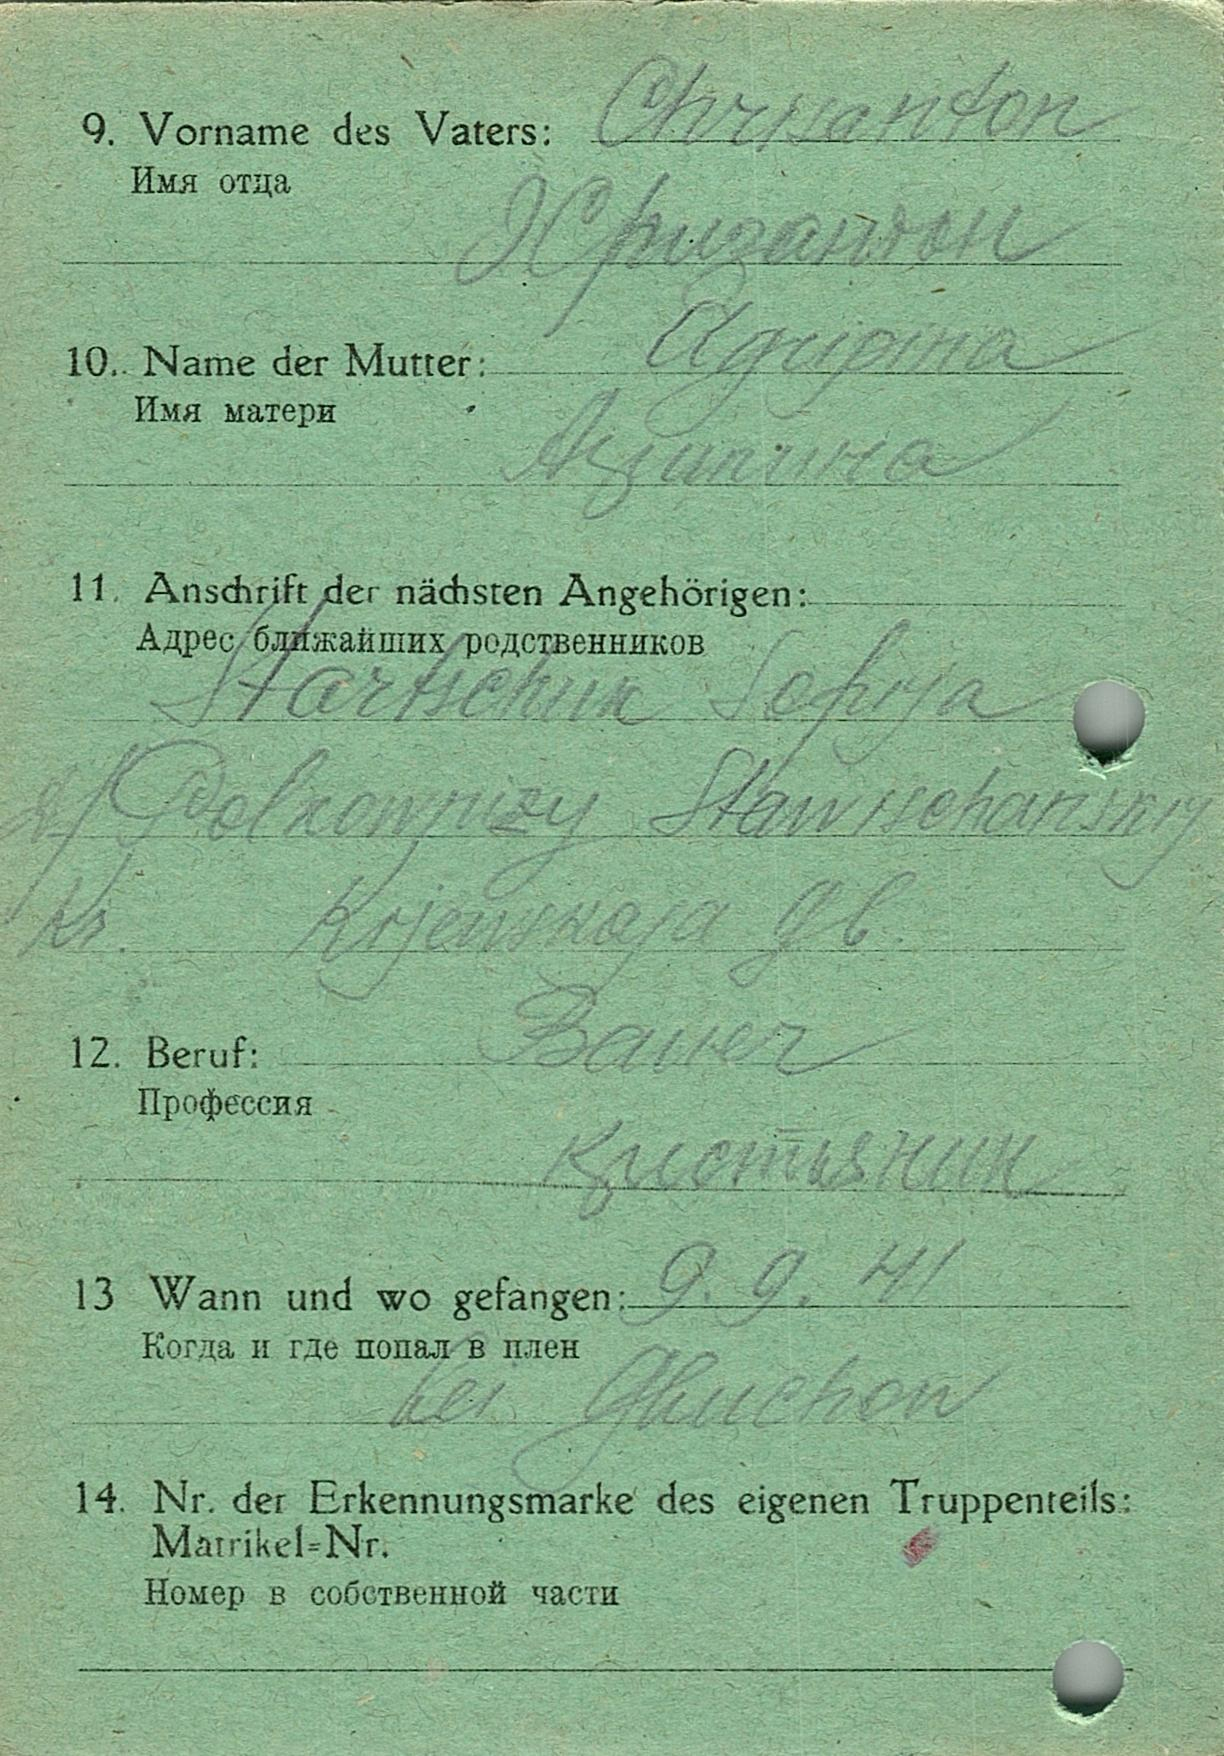 9. Vorname des Vaters: Chrisanton
Имя отца
Хризантон
10. Name der Mutter: Agripina
Имя матери
Агрипина
11. Anschrift der nächsten Angehörigen:
Адрес ближайших родственников
Startschuk Sofija
Stawischanskiy
Kr. Kijewskaja Gb.
12. Beruf: Bauer
Профессия
Кристьяник
13 Wann und wo gefangen: 9. 9. 41
Когда и где попал в плен
bei Gluchow
14. Nr. der Erkennungsmarke des eigenen Truppenteils:
Matrikel=Nr.
Номер в собственной части